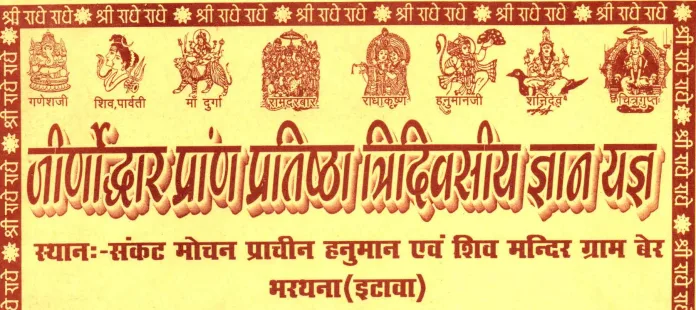 श्री राधे राधे श्री राधे राधे श्री राधे राधे श्री राधे राधे श्री राधे राधे श्री राधे राधे श्री राधे राधे
गणेशजी शिव,पार्वती माँ दुर्गा रामदरबार राधाकृष्ण हनुमानजी शनिदेव चित्रगुप्त
जीर्णोद्धार प्राण प्रतिष्ठा त्रिदिवसीय ज्ञान यज्ञ
स्थानः-संकट मोचन प्राचीन हनुमान एवं शिव मन्दिर ग्राम बेर
भरथना(इटावा)
श्री राधे राधे श्री राधे राधे
श्री राधे राधे श्री राधे राधे